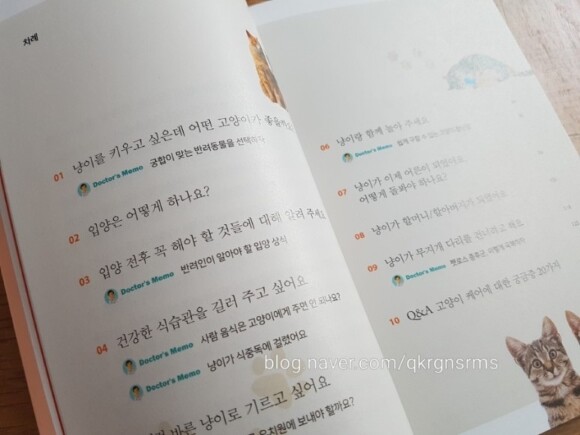 차례
01 냥이를 키우고 싶은데 어떤 고양이가 좋을까요
Doctor's Memo 궁합이 맞는 반려동물을 선택하
02 입양은 어떻게 하나요?
03 입양 전후 꼭 해야 할 것들에 대해 알려 주세요
Doctor's Memo 반려인이 알아야 할 입양 상식
04 건강한 식습관을 길러 주고 싶어요
Doctor's Memo 사람 음식은 고양이에게 주면 안 되나요?
Doctor's Memo 냥이가 식중독에 걸렸어요
바른 냥이로 기르고 싶어요
유치원에 보내야 할까요?
06 냥이랑 함께 놀아 주세요
Doctor's Memo
07 냥이가 이제 어른이 되었어요
어떻게 돌봐야 하나요?
08 냥이가 할머니/할아버지가 되었어요
09 냥이가 무지개 다리를 건너려고 해요
Doctor's Memo 펫로스 증후군, 이렇게 극복하자
10 Q&A 고양이 케어에 대한 궁금증 20가지
blog.naver.com/qkrgnsrms